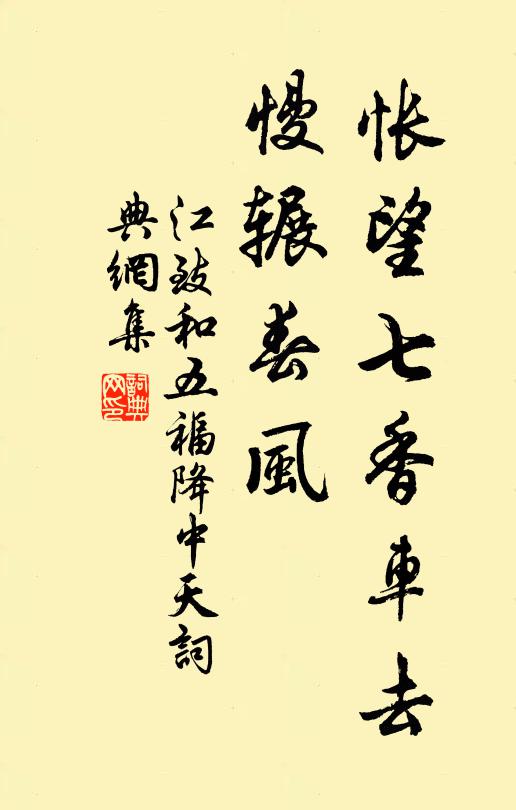 怅望七香車去
慢辗春風
江致和五福降中天詞
典網集
詞典网印